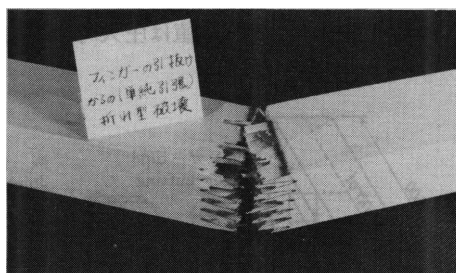 フィンガーの引抜け
からの(単純引張)
折れ型破壊